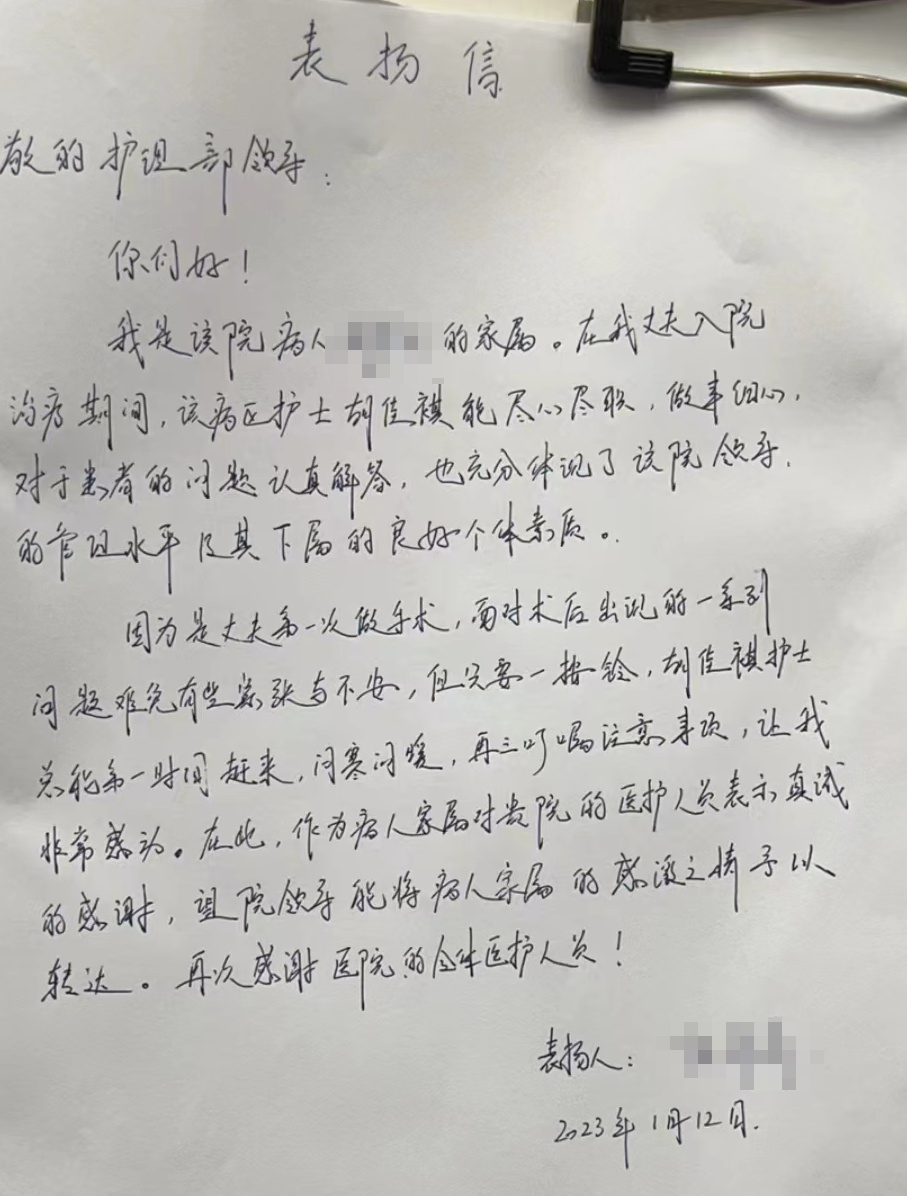 表扬信
敬的护理部领导：
你们好！
我是该院病人的家属。在我丈夫入院
治疗期间，该病区护士胡佳祺能尽心尽职，做事细心，
对于患者的问题认真解答，也充分体现了该院领导
的管理水平及其下属的良好个体素质。
因为是丈夫第一次做手术，面对术后出现的一系列
问题难免有些紧张与不安，但只要一按铃，胡佳祺护士
总能第一时间赶来，问寒问暖，再三叮嘱注意事项，让我
非常感动。在此，作为病人家属对贵院的医护人员表示真诚
的感谢，望院领导能将病人家属的感激之情予以
转达。再次感谢医院的全体医护人员！
表扬人：
2023年1月12日.